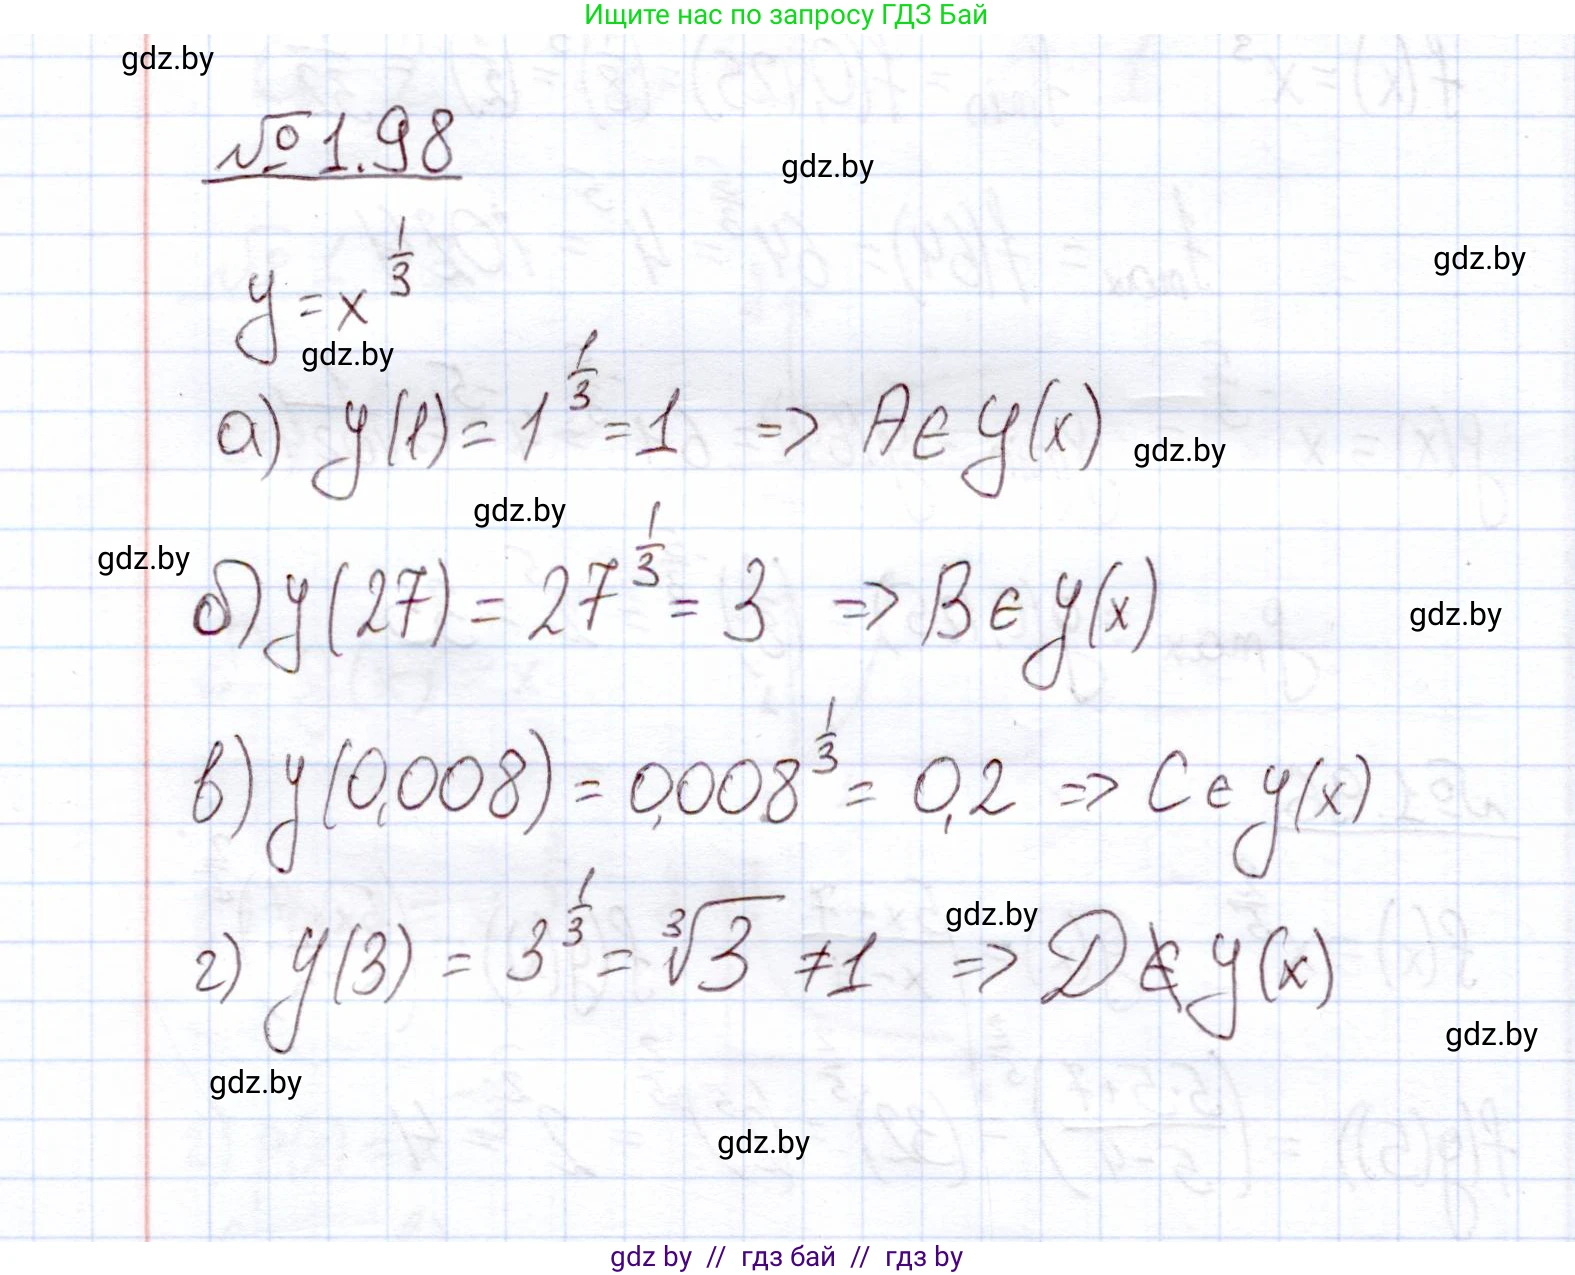 Ищите нас по запросу ГДЗ Бай
gdz.by
№ 1.98
gdz.by
gdz.by
y = x^{1/3}
gdz.by
а) y(1) = 1^{1/3} = 1 => A ∈ y(x)
gdz.by
gdz.by
gdz.by
б) y(27) = 27^{1/3} = 3 => B ∈ y(x)
gdz.by
в) y(0,008) = 0,008^{1/3} = 0,2 => C ∈ y(x)
gdz.by
г) y(3) = 3^{1/3} = ∛3 ≠ 1 => D ∉ y(x)
gdz.by
gdz.by
gdz.by
gdz by // гдз бай // гдз by